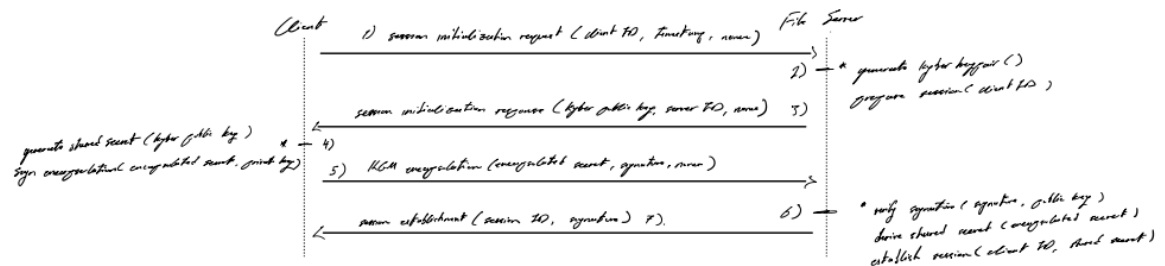 Client
File Server
1) session initialization request (client ID, timestamp, nonce)
2) * generate kyber keypair()
prepare session(client ID)
session initialization response (kyber public key, server ID, nonce) 3)
generate shared secret (kyber public key) * 4)
sign encapsulation(encapsulated secret, private key)
5) KEM encapsulation (encapsulated secret, signature, nonce)
6) * verify signature(signature, public key)
derive shared secret (encapsulated secret)
establish session(client ID, shared secret)
session establishment (session ID, signature) 7).